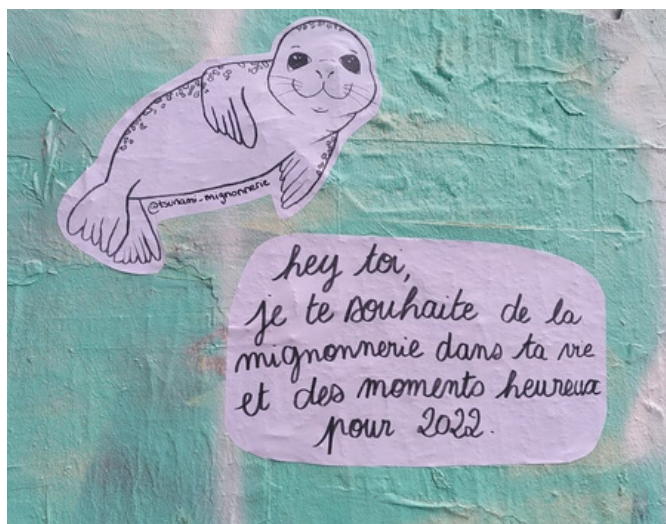 @tsunami-mignonnerie
hey toi,
je te souhaite de la
mignonnerie dans ta vie
et des moments heureux
pour 2022.